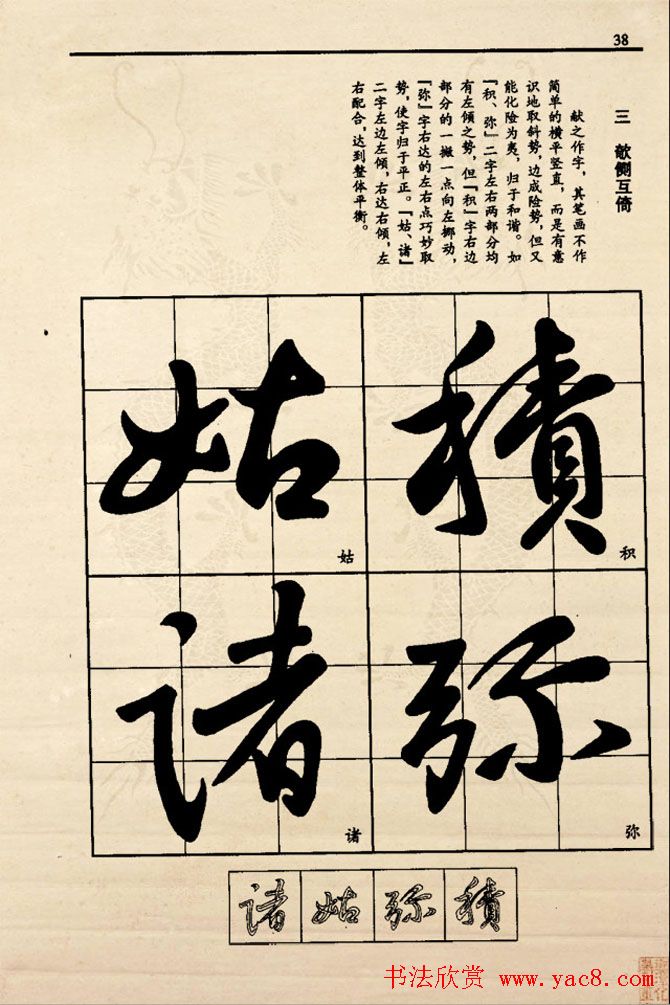 38
三 欹侧互倚
献之作字，其笔画不作
简单的横平竖直，而是有意
识地取斜势，边成险势，但又
能化险为夷，归于和谐。如
『积、弥』二字左右两部分均
有左倾之势，但『积』字右边
部分的一撇一点向左挪动，
『弥』字右达的左右点巧妙取
势，使字归于平正。『姑、诸』
二字左边左倾，右达右倾，左
右配合，达到整体平衡。
積
积
弥
弥
姑
姑
诸
诸
積
弥
姑
诸
书法欣赏 www.yac8.com